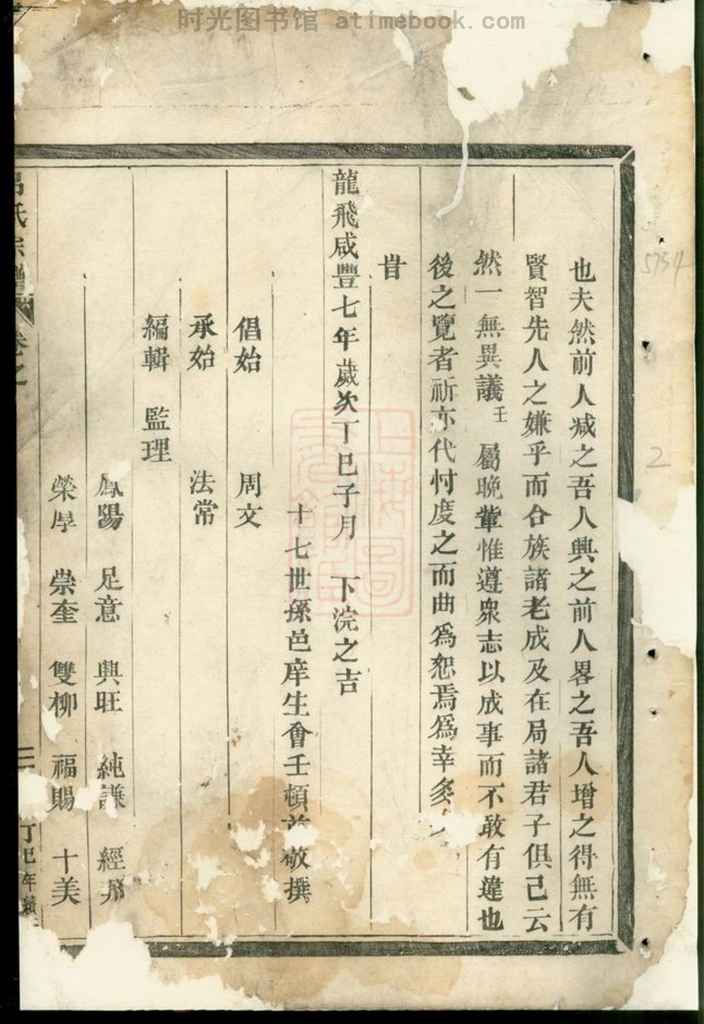 时光图书馆 atimebook.com
也夫然前人减之吾人興之前人畧之吾人增之得無有
賢智先人之嫌乎而合族諸老成及在局諸君子俱已云
然一無異議壬 屬晚輩惟遵眾志以成事而不敢有違也
後之覽者祈亦代忖度之而曲為恕焉為幸多
旹
龍飛咸豐七年歲次丁巳子月 下浣之吉
十七世孫邑庠生會壬頓首敬撰
倡始 周文
承始 法常
編輯 監理
鳳陽 足意 興旺 純謙 經邦
榮厚 崇奎 雙柳 福賜 十美
氏宗譜 卷之 三 丁巳年
5734
2